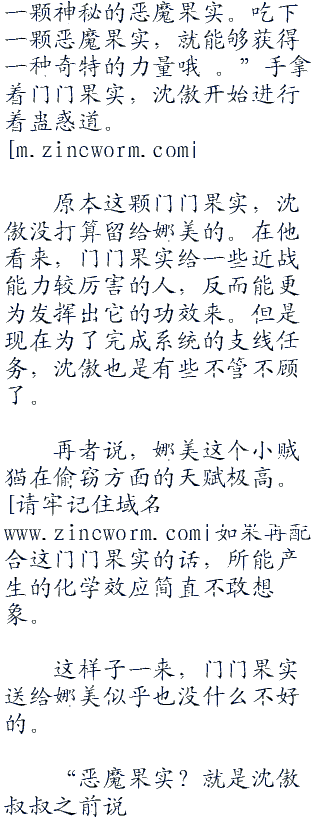 一颗神秘的恶魔果实。吃下
一颗恶魔果实，就能够获得
一种奇特的力量哦 。”手拿
着门门果实，沈傲开始进行
着蛊惑道。
[m.zincworm.com|
原本这颗门门果实，沈
傲没打算留给娜美的。在他
看来，门门果实给一些近战
能力较厉害的人，反而能更
为发挥出它的功效来。但是
现在为了完成系统的支线任
务，沈傲也是有些不管不顾
了。
再者说，娜美这个小贼
猫在偷窃方面的天赋极高。
[请牢记住域名
www.zincworm.com|如果再配
合这门门果实的话，所能产
生的化学效应简直不敢想
象。
这样子一来，门门果实
送给娜美似乎也没什么不好
的。
“恶魔果实？就是沈傲
叔叔之前说